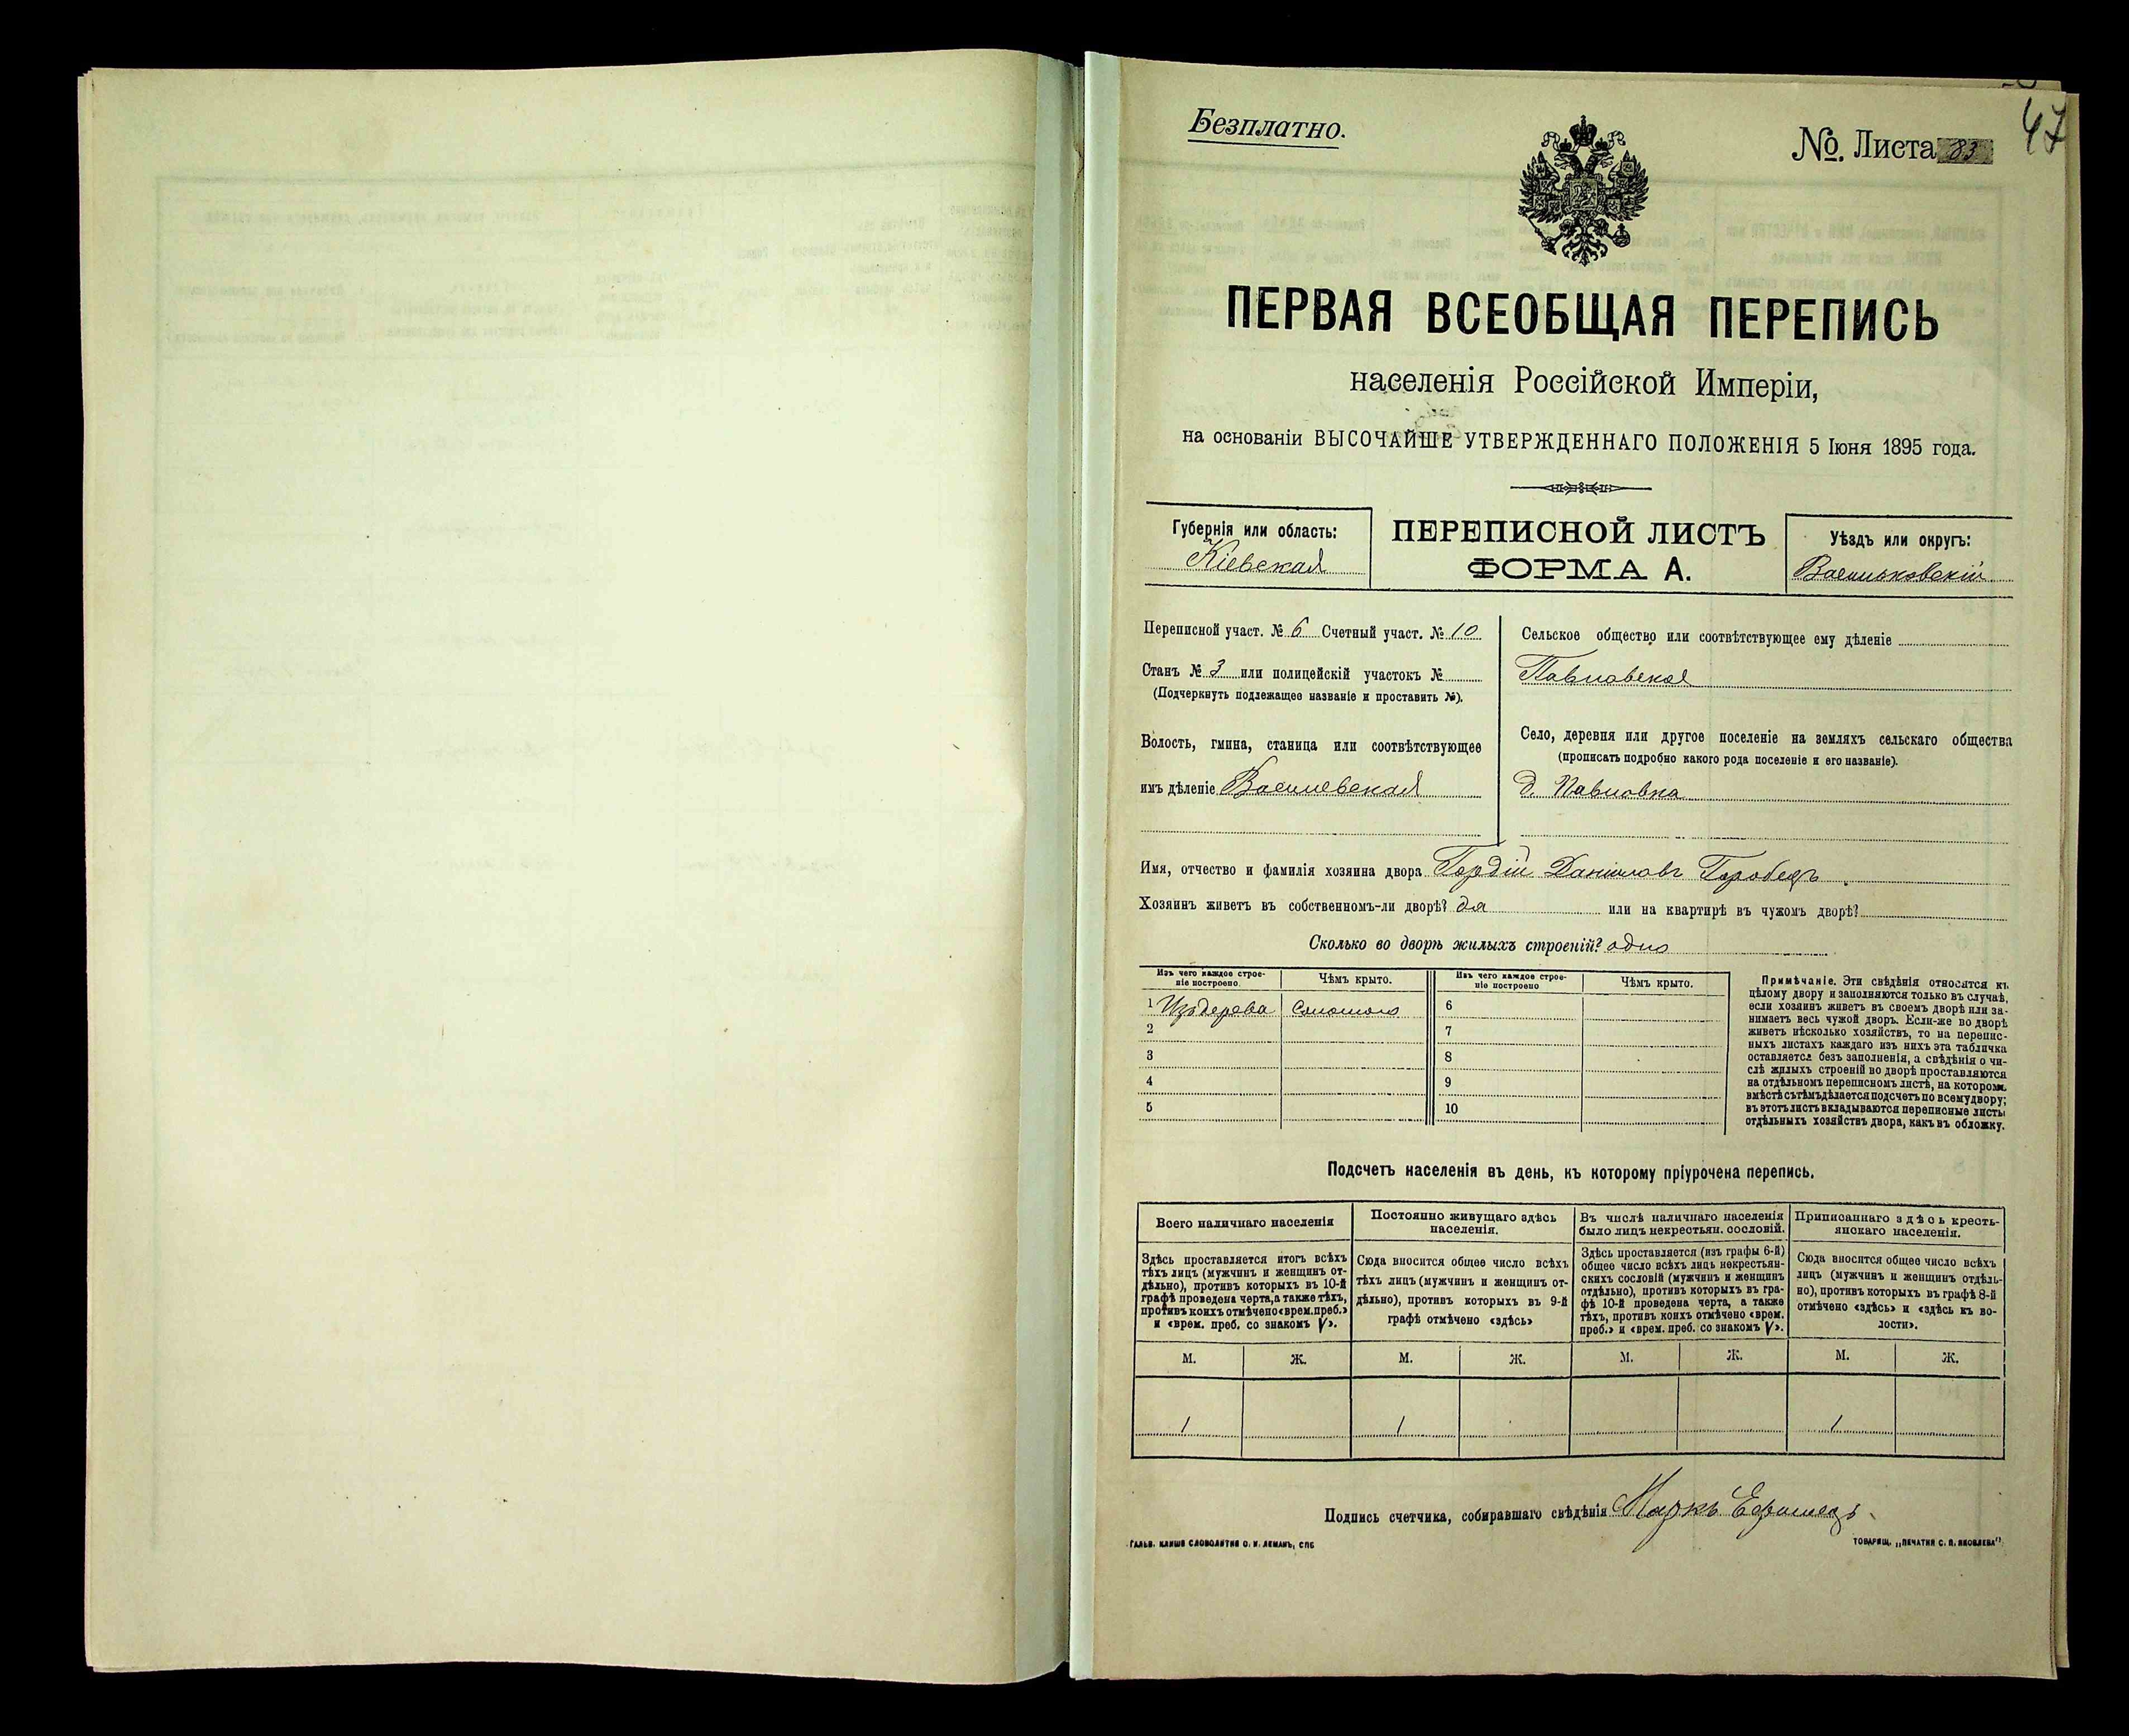 Безплатно.
№. Листа 83
47
ПЕРВАЯ ВСЕОБЩАЯ ПЕРЕПИСЬ
населенія Россійской Имперіи,
на основаніи ВЫСОЧАЙШЕ УТВЕРЖДЕННАГО ПОЛОЖЕНІЯ 5 Іюня 1895 года.
Губернія или область:
Кіевская
ПЕРЕПИСНОЙ ЛИСТЪ
ФОРМА А.
Уѣздъ или округъ:
Васильковскій
Переписной участ. № 6 Счетный участ. № 10
Станъ № 3 или полицейскій участокъ №
(Подчеркнуть подлежащее названіе и проставить №).
Волость, гмина, станица или соотвѣтствующее
имъ дѣленіе Васильевская
Сельское общество или соотвѣтствующее ему дѣленіе
Павловское
Село, деревня или другое поселеніе на земляхъ сельскаго общества
(прописать подробно какого рода поселеніе и его названіе).
д. Павловка
Имя, отчество и фамилія хозяина двора Гордій Даниловъ Горобецъ
Хозяинъ живетъ въ собственномъ-ли дворѣ? да или на квартирѣ въ чужомъ дворѣ?
Сколько во дворѣ жилыхъ строеній? одно
Изъ чего каждое строе-
ніе построено.
Чѣмъ крыто.
Изъ чего каждое строе-
ніе построено
Чѣмъ крыто.
1 Изъ дерева Соломою 6
2 7
3 8
4 9
5 10
Примѣчаніе. Эти свѣдѣнія относятся къ
цѣлому двору и заполняются только въ случаѣ,
если хозяинъ живетъ въ своемъ дворѣ или за-
нимаетъ весь чужой дворъ. Если-же во дворѣ
живетъ нѣсколько хозяйствъ, то на перепис-
ныхъ листахъ каждаго изъ нихъ эта табличка
оставляется безъ заполненія, а свѣдѣнія о чи-
слѣ жилыхъ строеній во дворѣ проставляются
на отдѣльномъ переписномъ листѣ, на которомъ
вмѣстѣ съ тѣмъ дѣлается подсчетъ по всему двору;
въ этотъ листъ вкладываются переписные листы
отдѣльныхъ хозяйствъ двора, какъ въ обложку.
Подсчетъ населенія въ день, къ которому пріурочена перепись.
Всего наличнаго населенія
Здѣсь проставляется итогъ всѣхъ
тѣхъ лицъ (мужчинъ и женщинъ от-
дѣльно), противъ которыхъ въ 10-й
графѣ проведена черта, а также тѣхъ,
противъ коихъ отмѣчено «врем. преб.»
и «врем. преб. со знакомъ V».
Постоянно живущаго здѣсь
населенія.
Сюда вносится общее число всѣхъ
тѣхъ лицъ (мужчинъ и женщинъ от-
дѣльно), противъ которыхъ въ 9-й
графѣ отмѣчено «здѣсь»
Въ числѣ наличнаго населенія
было лицъ некрестьян. сословій.
Здѣсь проставляется (изъ графы 6-й)
общее число всѣхъ лицъ некрестьян-
скихъ сословій (мужчинъ и женщинъ
отдѣльно), противъ которыхъ въ гра-
фѣ 10-й проведена черта, а также
тѣхъ, противъ коихъ отмѣчено «врем.
преб.» и «врем. преб. со знакомъ V».
Приписаннаго здѣсь кресть-
янскаго населенія.
Сюда вносится общее число всѣхъ
лицъ (мужчинъ и женщинъ отдѣль-
но), противъ которыхъ въ графѣ 8-й
отмѣчено «здѣсь» и «здѣсь къ во-
лости».
М. Ж. М. Ж. М. Ж. М. Ж.
1 1 1
Подпись счетчика, собиравшаго свѣдѣнія Маркъ
Гальв. клише словолитни О. И. Леманъ, СПБ
ТОВАРИЩ. „ПЕЧАТНЯ С. П. ЯКОВЛЕВА"